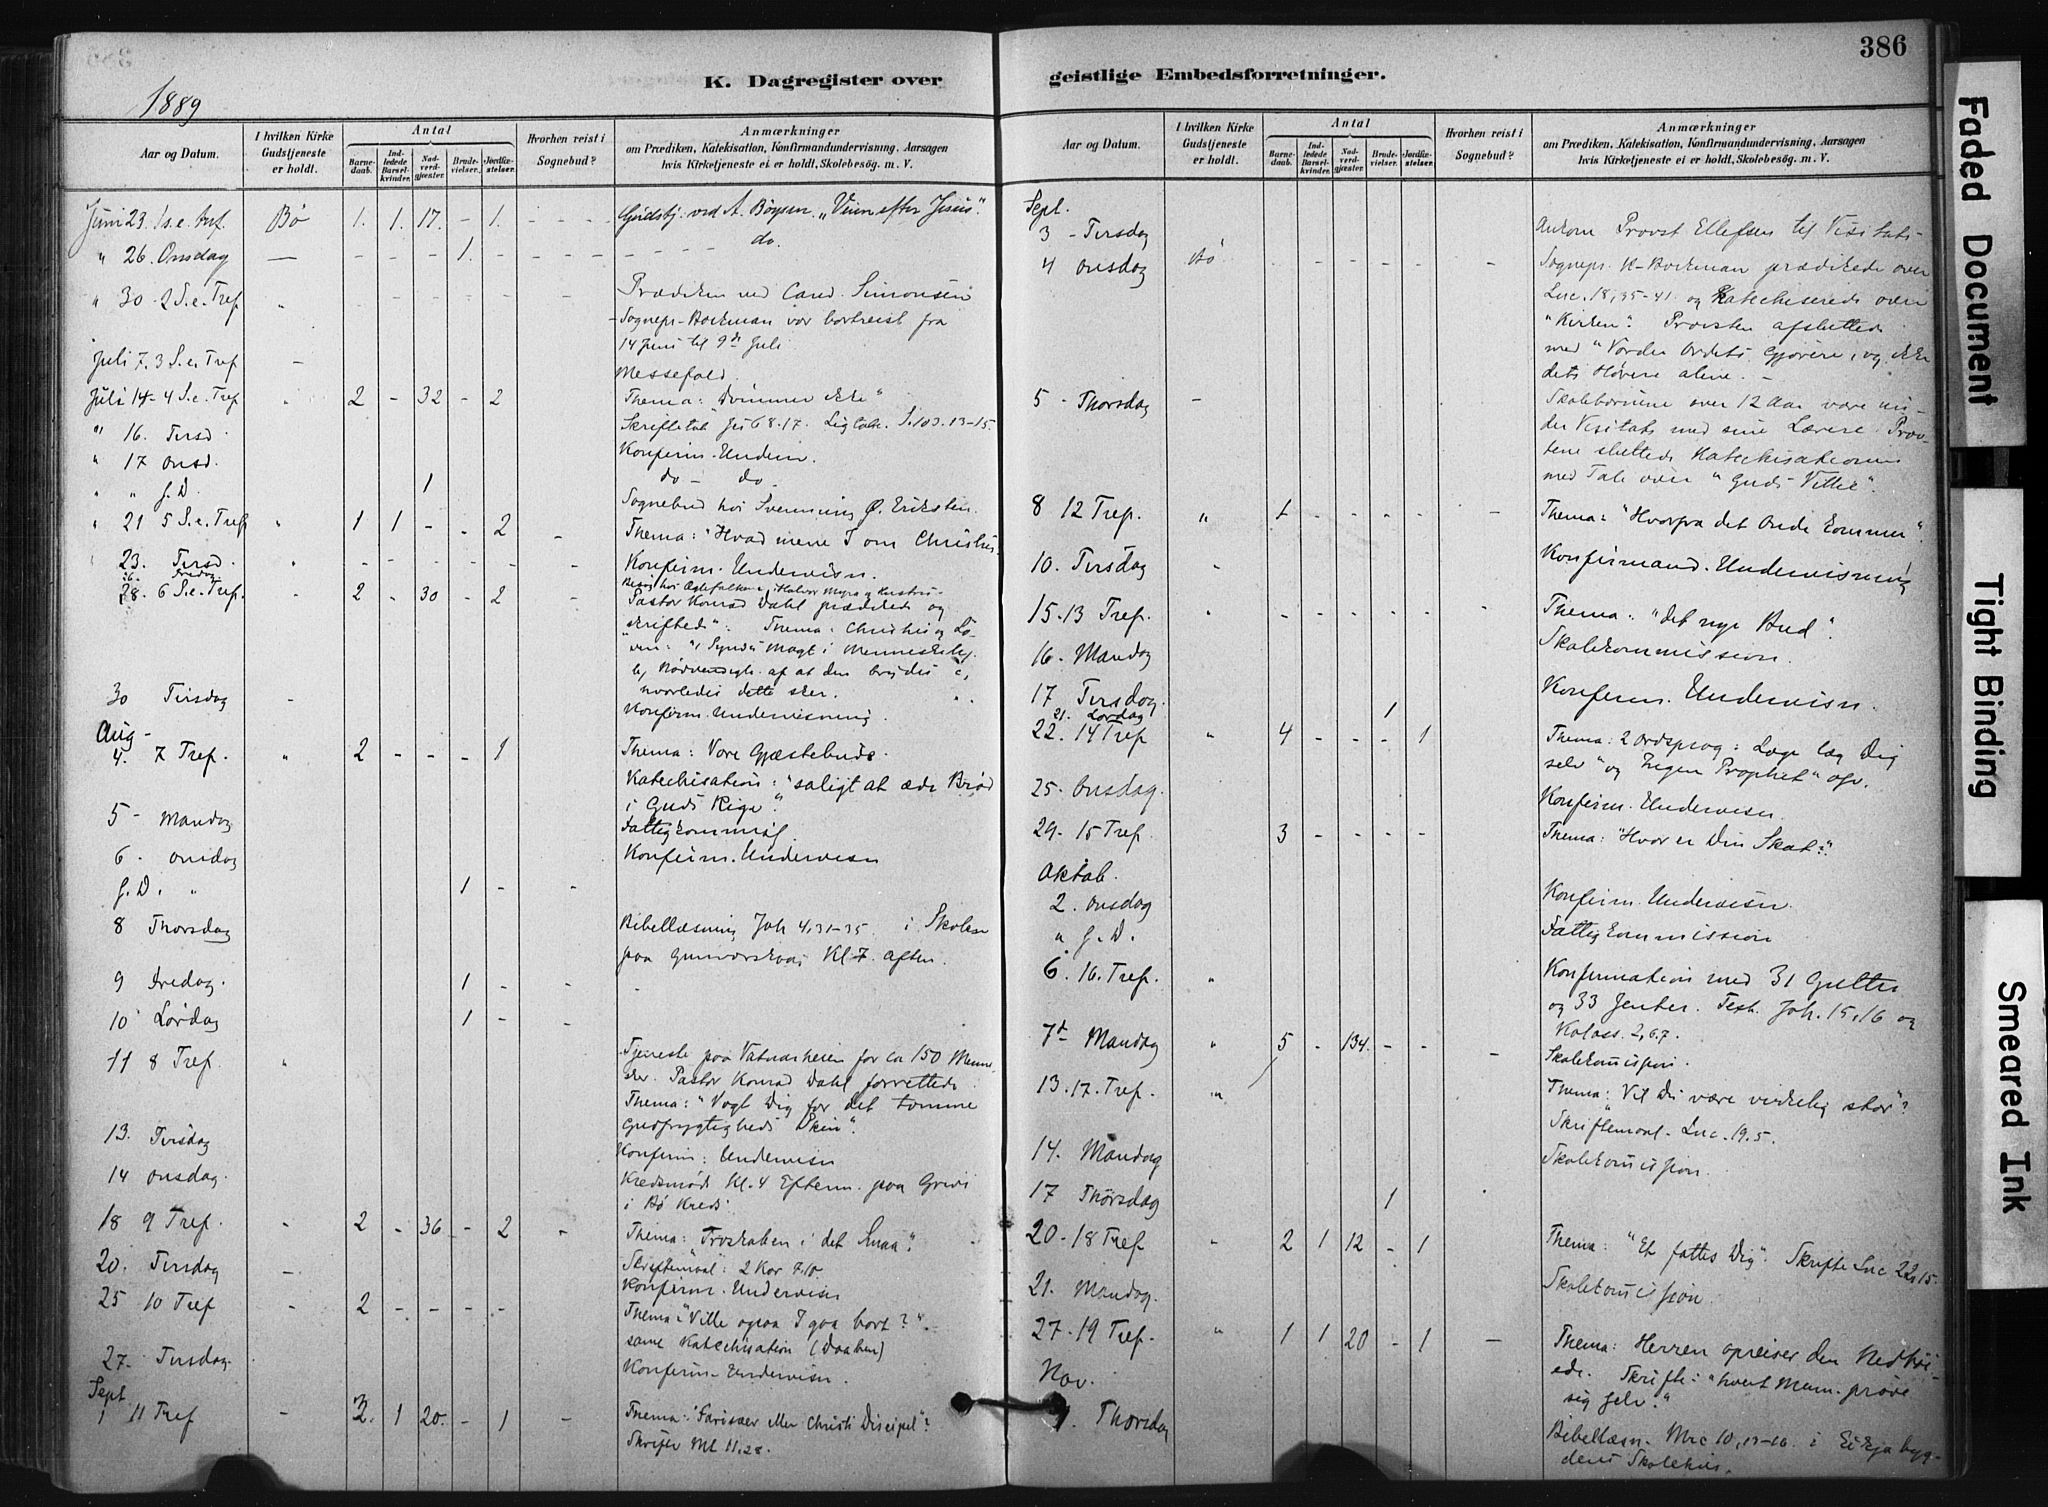 386
K. Dagregister over geistlige Embedsforretninger.
1889
Aar og Datum.
I hvilken Kirke Gudstjeneste er holdt.
Antal
Barnedaab.
Indledede Barselkvinder.
Nadverdgjæster.
Brudevielser.
Jordfæstelser.
Hvorhen reist i Sognebud?
Anmærkninger
om Prædiken, Katekisation, Konfirmandundervisning, Aarsagen
hvis Kirketjeneste ei er holdt, Skolebesøg. m. V.
Juni 23. 1 s. e. Bø 1. 1. 17. - 1. Gudstj. ved A. Bøysen. "Veien efter Jesus".
" 26. Onsdag — 1. do.
" 30 - 2 S. e. Tref. " Prædiken ved Cand. Simonsen
Sognepr. Bockman var bortreist fra
14 Juni til 9de Juli
Juli 7. 3 S. e. Tref — Messefald.
Juli 14 - 4 S. e. Tref " 2 - 32 - 2 Thema: "Dømmer ikke"
Skriftetal 13-15.
" 16. Tirsd. Konfirm. Underv.
" 17 Onsd. do - do
" " S. D. 1 Sognebud hos Svenning Ø. Eriksten.
" 21 5 S. e. Tref " 1 1 - - 2 - Thema: "Hvad mene I om Christus.
" 23. Tirsd. " Konfirm. Undervisn.
26. Fredag
28. 6 S. e. Tref. " 2 - 30 - 2 - Pastor Konrad Dahl prædikede og
skriftede". Thema: Christus og
Syndens Magt i
Nødvendigh. af at den brydes
hvorledes dette sker.
30 Tirsdag - Konfirm. Undervisning.
Aug -
4. 7 Tref. " 2 - - - 1 Thema: Vore Gjæstebude.
Katechisation: "saligt at æde Brød
i Guds Rige".
5 - Mandag Fattigkommiss.
6. Onsdag Konfirm. Undervisn
S. D. " 1 - -
8 Thorsdag Bibellæsning Joh 4, 31-35 i Skolen
paa Gunvarskaas Kl 7. aften.
9 Fredag. 1 - - -
10 Lørdag 1 - -
11 8 Tref. " Tjeneste paa Vatnarheien for ca 150 Menne-
sker. Pastor Konrad Dahl forrettede.
Thema: "Vogt Dig for det tomme
Gudfrygtigheds Skin".
13. Tirsdag Konfirm: Undervisn
14 Onsdag. Kredsmøde Kl. 4 Efterm. paa Grivi
i Bø Kreds.
18 9 Tref. - 2 - 36 - 2 - Thema: Troskaben i det Smaa".
Skriftemaal: 2 Kor 7.10.
20. Tirsdag - Konfirm. Undervisn
25 10 Tref - 2 - - - - Thema: "Ville ogsaa I gaa bort?".
samt Katechisation (Daaben)
27. Tirsdag. Konfirm. Undervisn.
Sept
1 11 Tref - 3. 1 20. - 1 - Thema: "Farisæer eller Christi Discipel"?
Skrifte Mt 11.28.
Aar og Datum.
I hvilken Kirke Gudstjeneste er holdt.
Antal
Barnedaab.
Indledede Barselkvinder.
Nadverdgjæster.
Brudevielser.
Jordfæstelser.
Hvorhen reist i Sognebud?
Anmærkninger
om Prædiken, Katekisation, Konfirmandundervisning, Aarsagen
hvis Kirketjeneste ei er holdt, Skolebesøg. m. V.
Sept.
3 - Tirsdag Ankom Provst Ellefsen til Visitats -
4 Onsdag Bø - Sognepr. Bockman prædikede over
Luc. 18, 35-41. og Katechiserede over
"Kirken". Provsten afsluttede
med "Vorder Ordets Gjørere, og ikke
dets Hørere alene. -
5 - Thorsdag - Skolebørnene over 12 Aar vare un-
der Visitats med sine Lærere. Prov-
sten sluttede Katechisationen
med Tale over "Guds Villie".
8 12 Tref. " 1 - - - - - Thema: "Hvorfra det Onde kommer".
10. Tirsdag " Konfirmand. Undervisning
15. 13 Tref. " Thema: "det nye Bud".
16. Mandag Skolekommission.
17 Tirsdag. Konfirm. Undervisn.
21. Lørdag 1
22. 14 Tref " 4 - - - 1 Thema: 2 Ordsprog: Læge læg Dig
selv" og "Ingen Prophet" osv.
25. Onsdag. Konfirm. Undervisn.
29. 15 Tref. 3 - - - - Thema: "Hvor er Din Skat?".
Oktob.
2. Onsdag Konfirm. Undervisn.
" S. D. Fattigkommission
6. 16. Tref. " Konfirmation med 31 Gutter
og 33 Jenter. Text. Joh. 15, 16 og
Koloss. 2, 6.7.
7de Mandag " 5 - 134. - - - Skolekommission.
13. 17. Tref. " Thema: "Vil Du være virkelig stor"?
Skriftemaal - Luc. 19.5.
14. Mandag Skolekommission.
17 Thorsdag 1
20. 18 Tref " 2 1 12 - 1 Thema: "Et fattes Dig". Skrifte Luc 22, 15.
21. Mandag. Skolekommission.
27. 19 Tref. " 1 1 20 - 1 - Thema: Herren opreiser den Nedbøi-
ede. Skrifte: "hvert Menn. prøve
sig selv."
Nov.
7. Thorsdag Bibellæsn. Mrc 10, 13-16. i Eikjabyg-
dens Skolehus.
Faded Document
Tight Binding
Smeared Ink